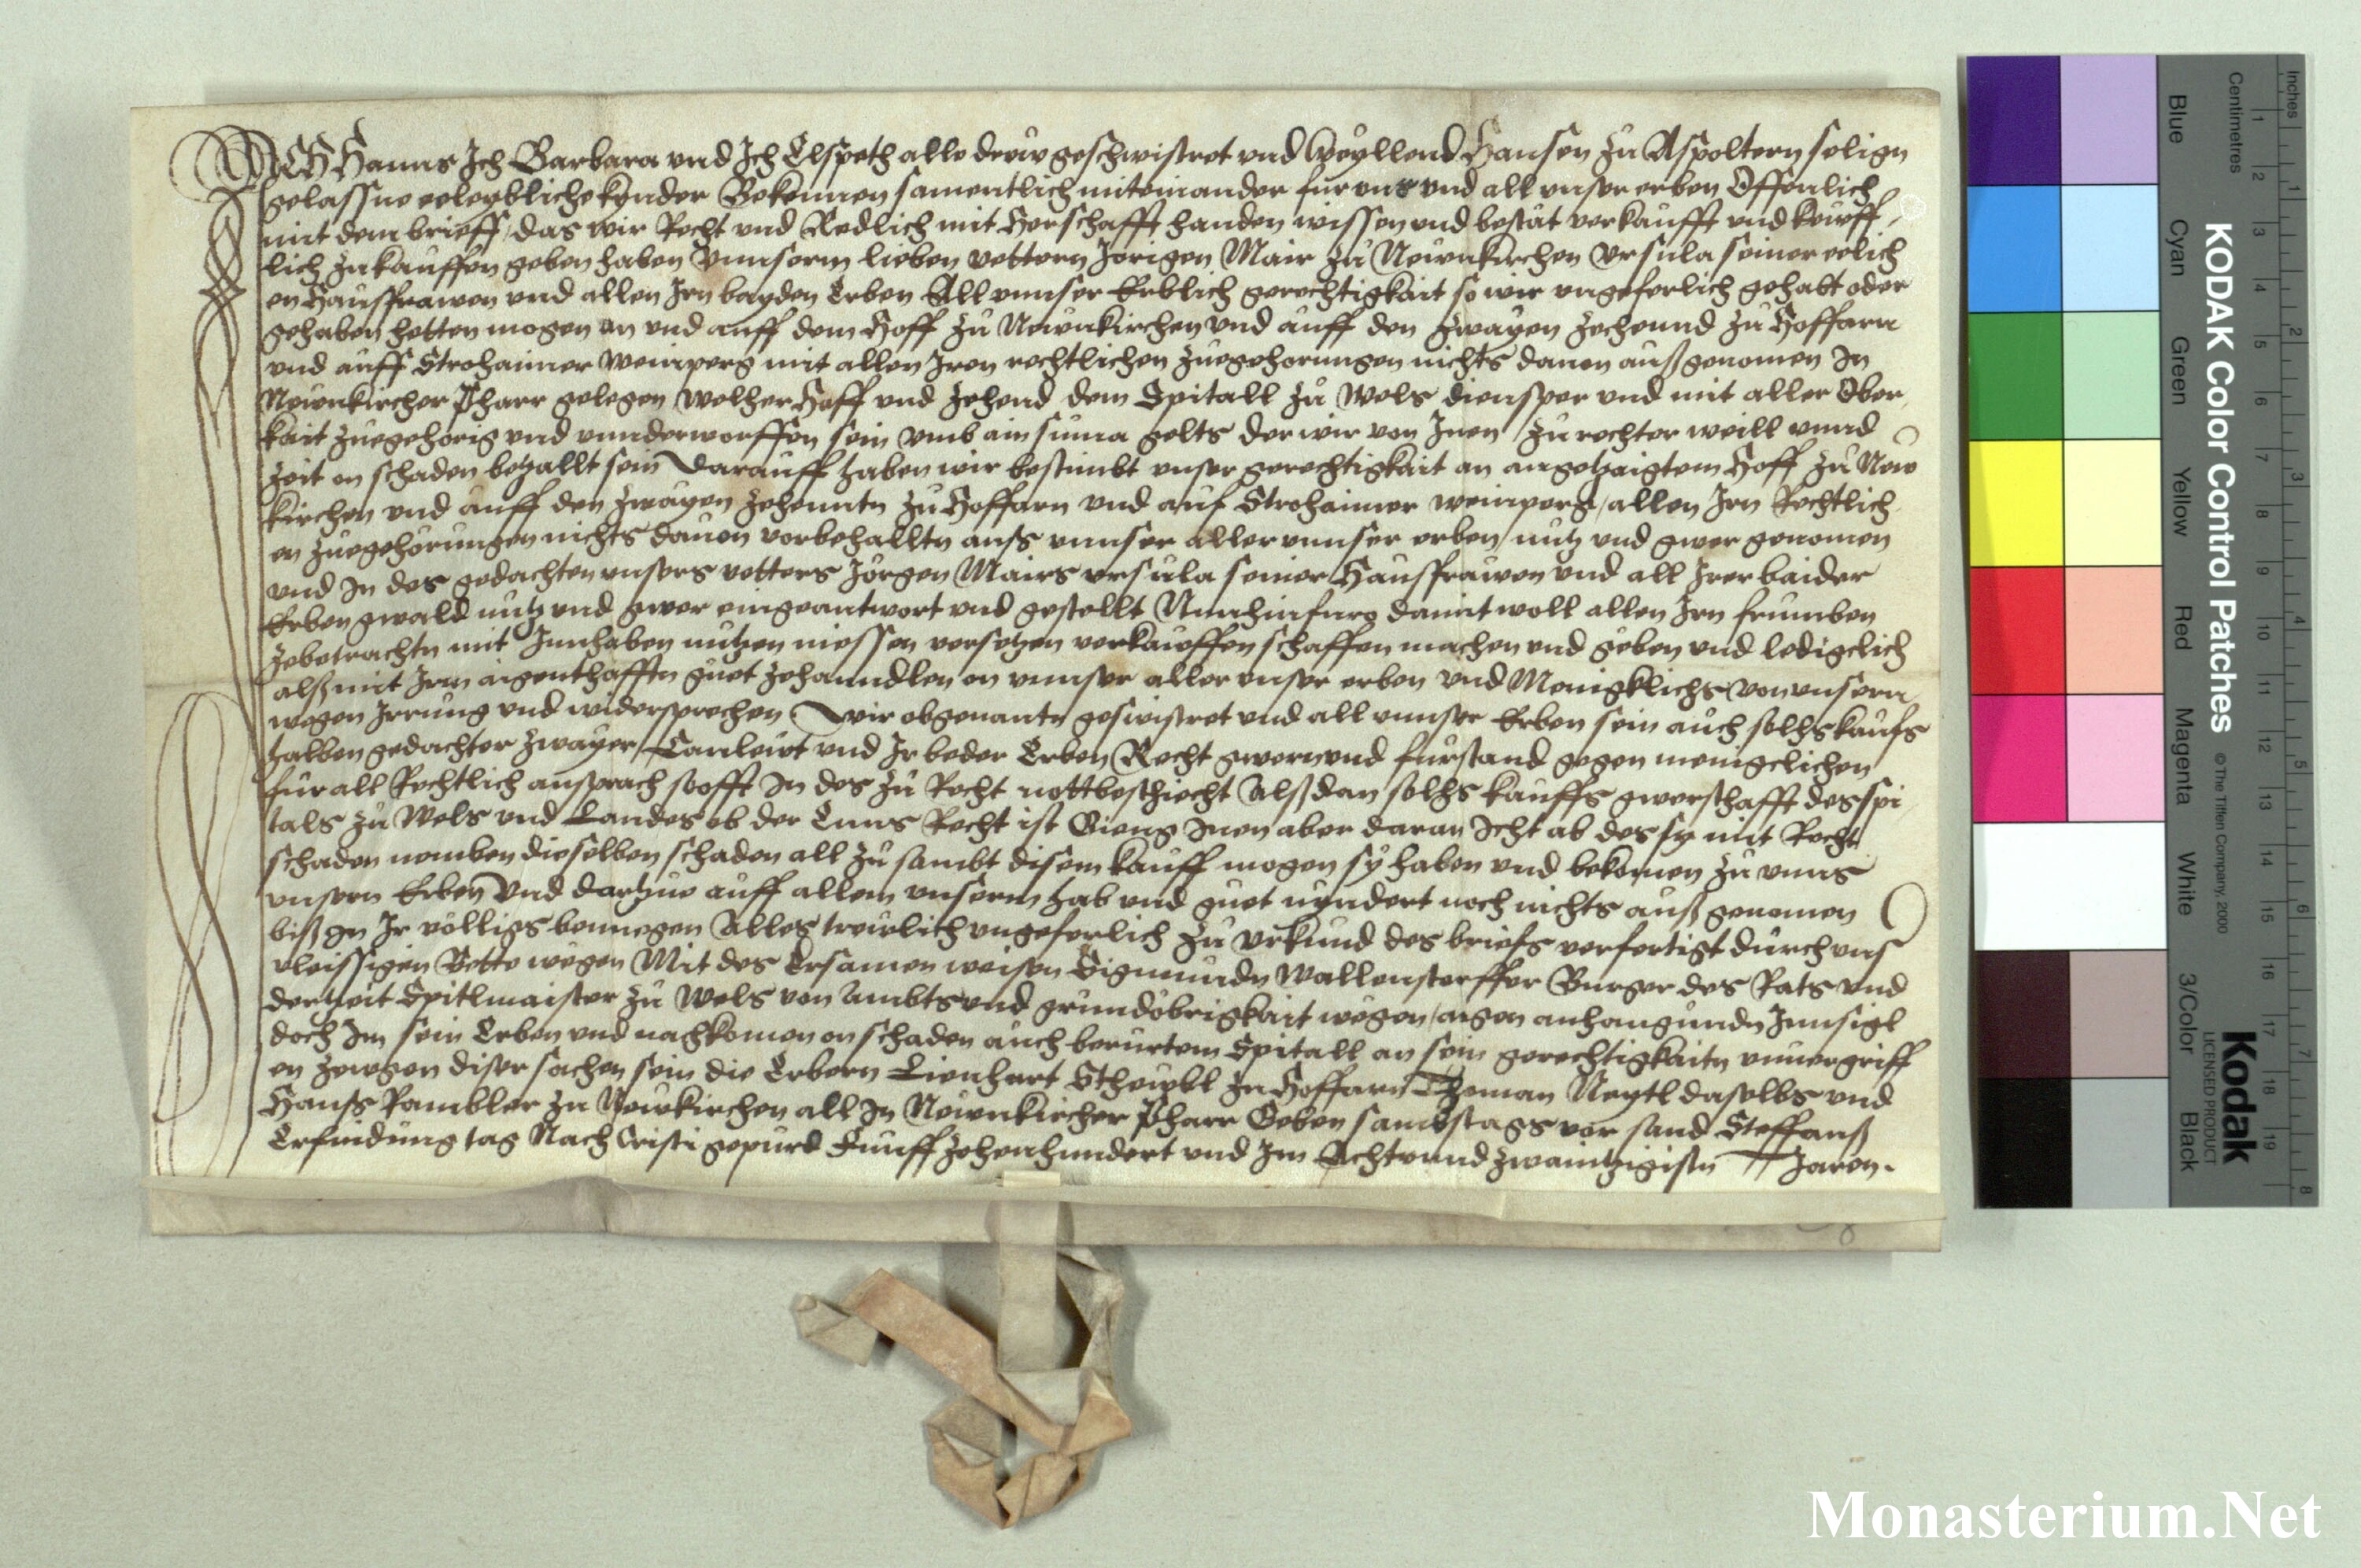 ICH Hanns Ich Barbara vnd Ich Elspeth alle drew geschwistret vnd Weyllend Hansen zu Aspoltern selign
gelassne eeleybliche kynder Bekennen samentlich miteinander fur vns vnd all vnser erben Offenlich
mit dem brieff, das wir Recht vnd Redlich mit Herschafft handen wissen vnd bestät verkaufft vnd keuff
lich zukauffen geben haben Vnnserm lieben vettern Jorigen Mair zu Newnkirchen Vrsula seiner eelich
en Hausfrawen vnd allen Irn bayden Erben All vnnser Erblich gerechtigkait so wir vngeferlich gehabt oder
gehaben hetten mogen an vnd auff dem Hoff zu Newnkirchen vnd auff den zwayen zehennd zu Hoffarn
vnd auff Strohaimer Weinperg mit allen Iren rechtlichen zuegehorungen nichts dauon außgenomen In
Newnkircher Pharr gelegen Welher Hoff vnd zehend dem Spitall zu Wels diensper vnd mit aller Ober
kait zuegehorig vnd vnnderworffen sein vmb ain suma gelts der wir von Inen zu rechter weill vnnd
zeit on schaden betzallt sein Darauff haben wir bestimbt vnser gerechtigkait an angetzaigtem Hoff zu New
kirchen vnd auff den zwayen zehenntn zu Hoffarn vnd auf Strohaimer weinperg, allen Irn Rechtlich
en zuegehorungen nichts dauon vorbehalltn auss vnnser aller vnnser erben nutz vnd gwer genomen
vnd In des gedachten vnsers vetters Jorgen Mairs vrsula seiner Hausfrawen vnd all Irer baider
Erben gwald nutz vnd gwer eingeantwort vnd gestellt Nunhinfuro damit woll allen Irn frumben
zebetrachtn mit Innhaben nutzen niessen versetzen verkauffen schaffen machen vnd geben vnd lediglich
alß mit Irm aigenthafftn guet zehanndlen on vnnser aller vnser erben vnd Menigklichs von vnsern
wegen Irrung vnd widersprechen Wir obgenantn geswistret vnd all vnnser Erben sein auch solhs kaufs
halben gedachter zwayer Conleivt vnd Ir beder Erben Recht gwern vnd furstand gegen menigclichen
fur all Rechtlich ansprach soofft In des zu Recht nottbeschiecht Alß dan solhs kauffs gwerschafft des spi
tals zu Wels vnd Landes ob der Enns Recht ist Gieng Inen aber daran Icht ab des sy mit Recht
schaden nemben dieselben schaden all zu sambt disem kauff mogen sy haben vnd bekomen zu vnns
vnsern Erben Vnd dartzue auff allem vnserm hab vnd guet nyndert noch nichts auß genomen
biß an Ir völligs benuegen Alles trewlich vngeferlich zu vrkund des briefs verfertigt durch vns
vleissigen Bette wegen Mit des Ersamen weisen Sigmundn Wallensterffer Burger des Rats vnd
dertzeit Spitlmaister zu Wels von Ambts vnd grundobrigkait wegen, aigen anhangundn Innsigl
doch Im sein Erben vnd nachkomen on schaden auch berurtem Spitall an sein gerechtigkaitn vnuergriff
en zewgen diser sachen sein die Erbern Lienhart Schewbl zu Hoffarn Thoman Neytl daselbs vnd
Hanss Rambler zu Newkirchen all In Newnkircher Pharr Geben sambstags vor sand Steffanß
Erfindung tag Nach Cristi gepurd Funffzehenhundert vnd Im Achtvnndzwaintzigistn Jaren.
KODAK Color Control Patches © The Tiffen Company, 2000
Kodak
LICENSED PRODUCT
Inches
Centimetres
Blue
Cyan
Green
Yellow
Red
Magenta
White
3/Color
Black
Monasterium.Net